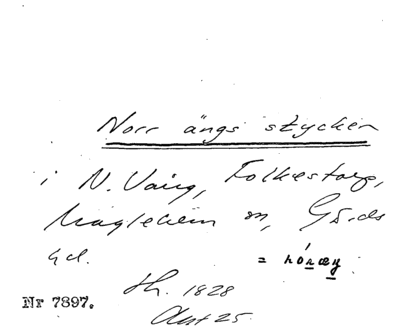 Norr ängs stycken
i N. Vång, Folkestorp,
Maglehem sn, Gärds
hd. = nóræŋ
Sk. 1828
Akt 25.
Nr 7897.